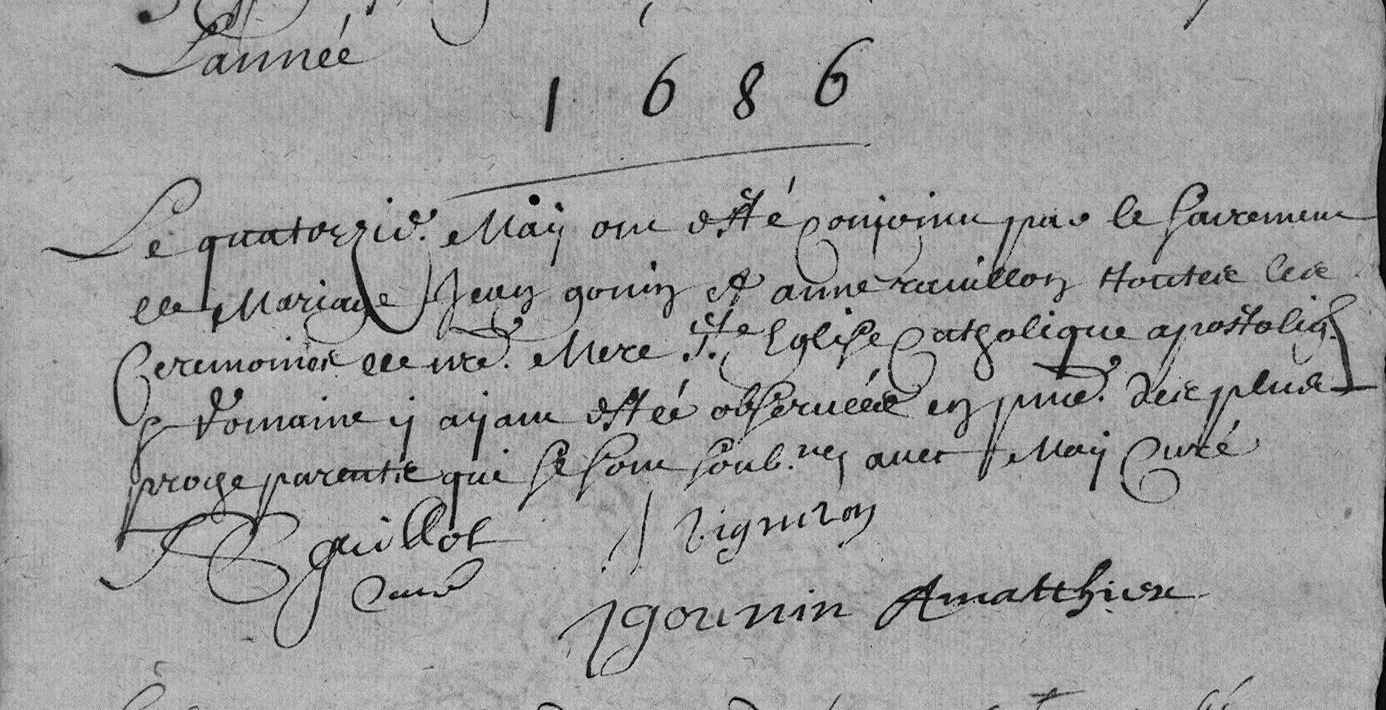 L'année
1686
Le quatorzie. May ont esté conjoint par le sacrement
de Mariage Jean gonin et anne rauillon toutes les
Ceremonies de nre. Mere Ste Eglise Catholique apostoliq.
& Romaine y ayant estéé obseruéés en pnce. des plus
proge parents qui se sont soub.nes auec Moy Curé
guillot
Curé
Vigneron
J gounin Amatthieu